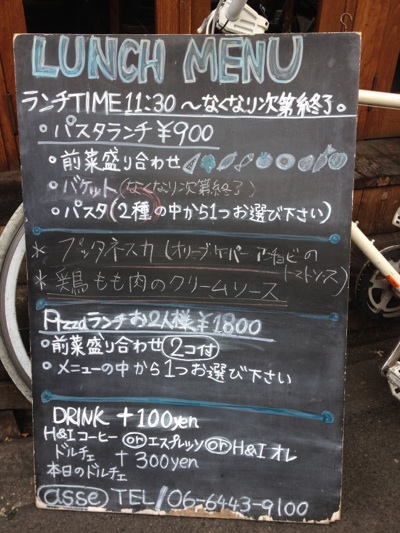 LUNCH MENU
ランチTIME 11:30 ～なくなり次第終了。
・パスタランチ ¥900
・前菜盛り合わせ
・バケット(なくなり次第終了)
・パスタ(2種の中から1つお選び下さい)
* プッタネスカ(オリーブケーパーアンチョビの
トマトソース)
* 鶏もも肉のクリームソース
Pizzaランチお2人様 ¥1800
・前菜盛り合わせ 2コ付
・メニューの中から1つお選び下さい
DRINK +100yen
H&Iコーヒー or エスプレッソ or H&I オレ
ドルチェ +300yen
本日のドルチェ
asse TEL/06-6443-9100